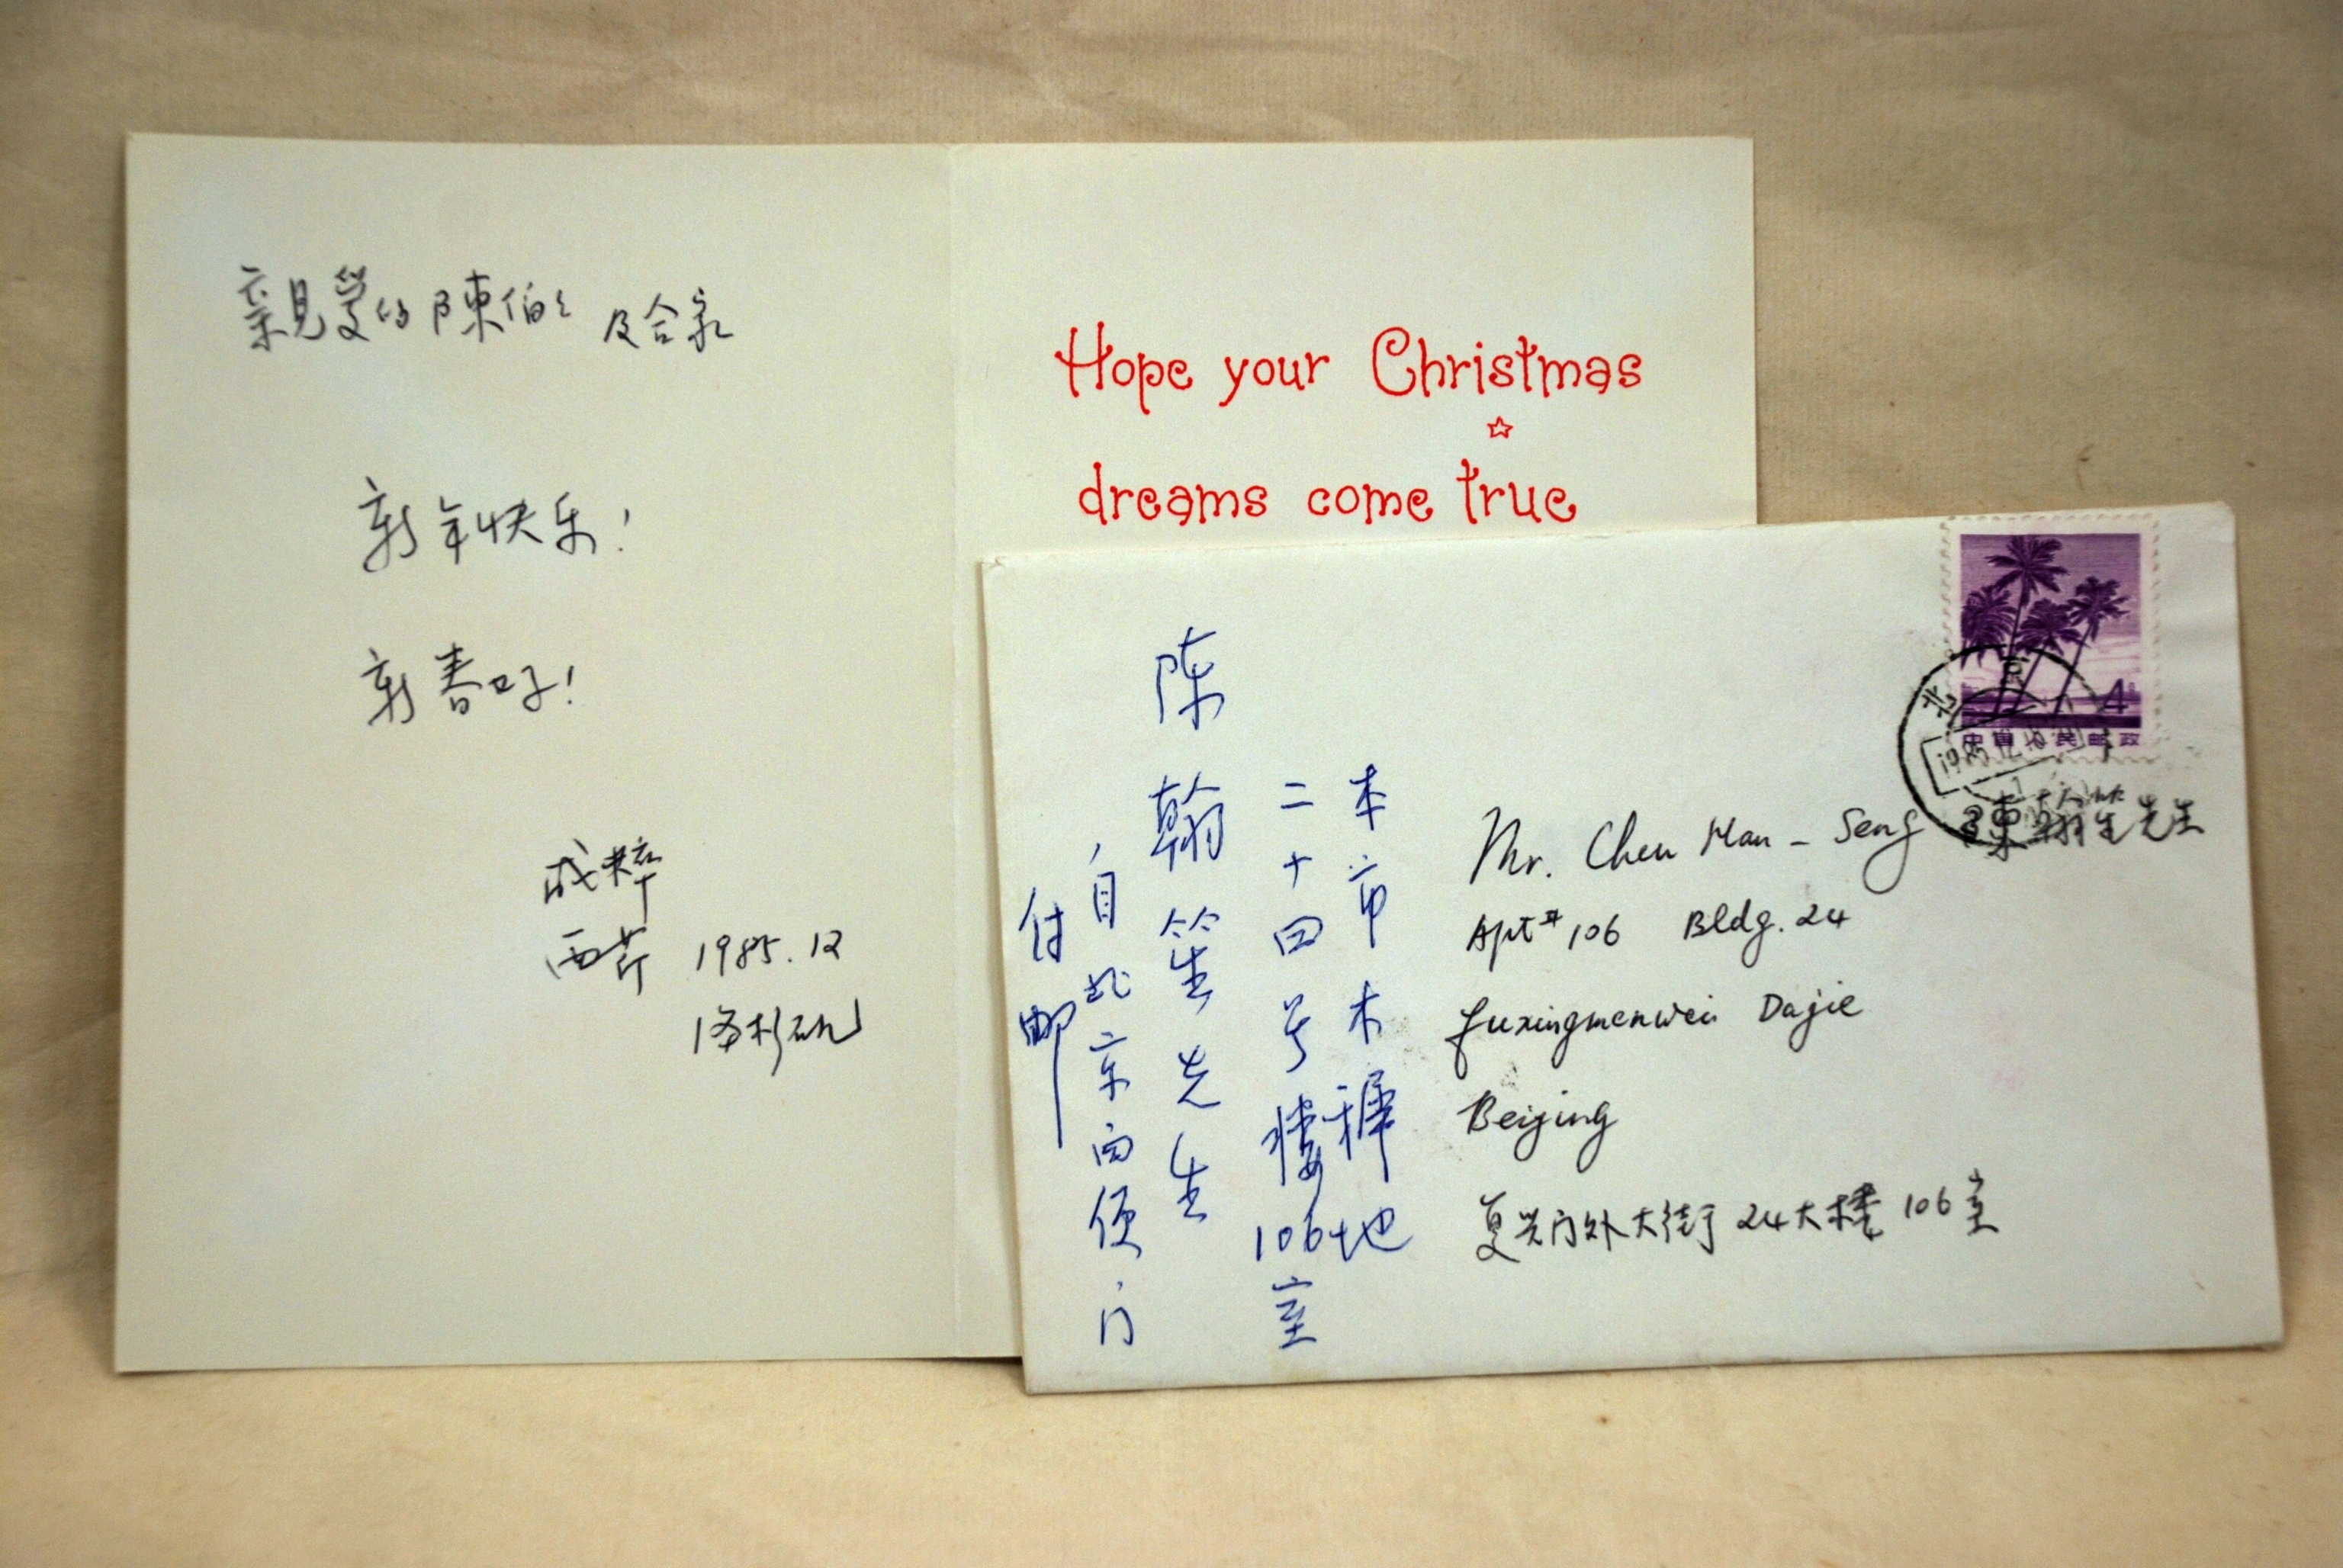 親愛的陳伯伯及合家
新年快乐!
新春好!
成粹
西芹 1985.12
Hope your Christmas
dreams come true
本市木樨地
二十四号楼106室
陈翰笙先生
付邮
Mr. Chen Han-Seng 陳翰笙先生
Apt# 106 Bldg. 24
Fuxingmenwei Dajie
Beijing
复兴门外大街24大楼106室
北京
4
中国人民邮政